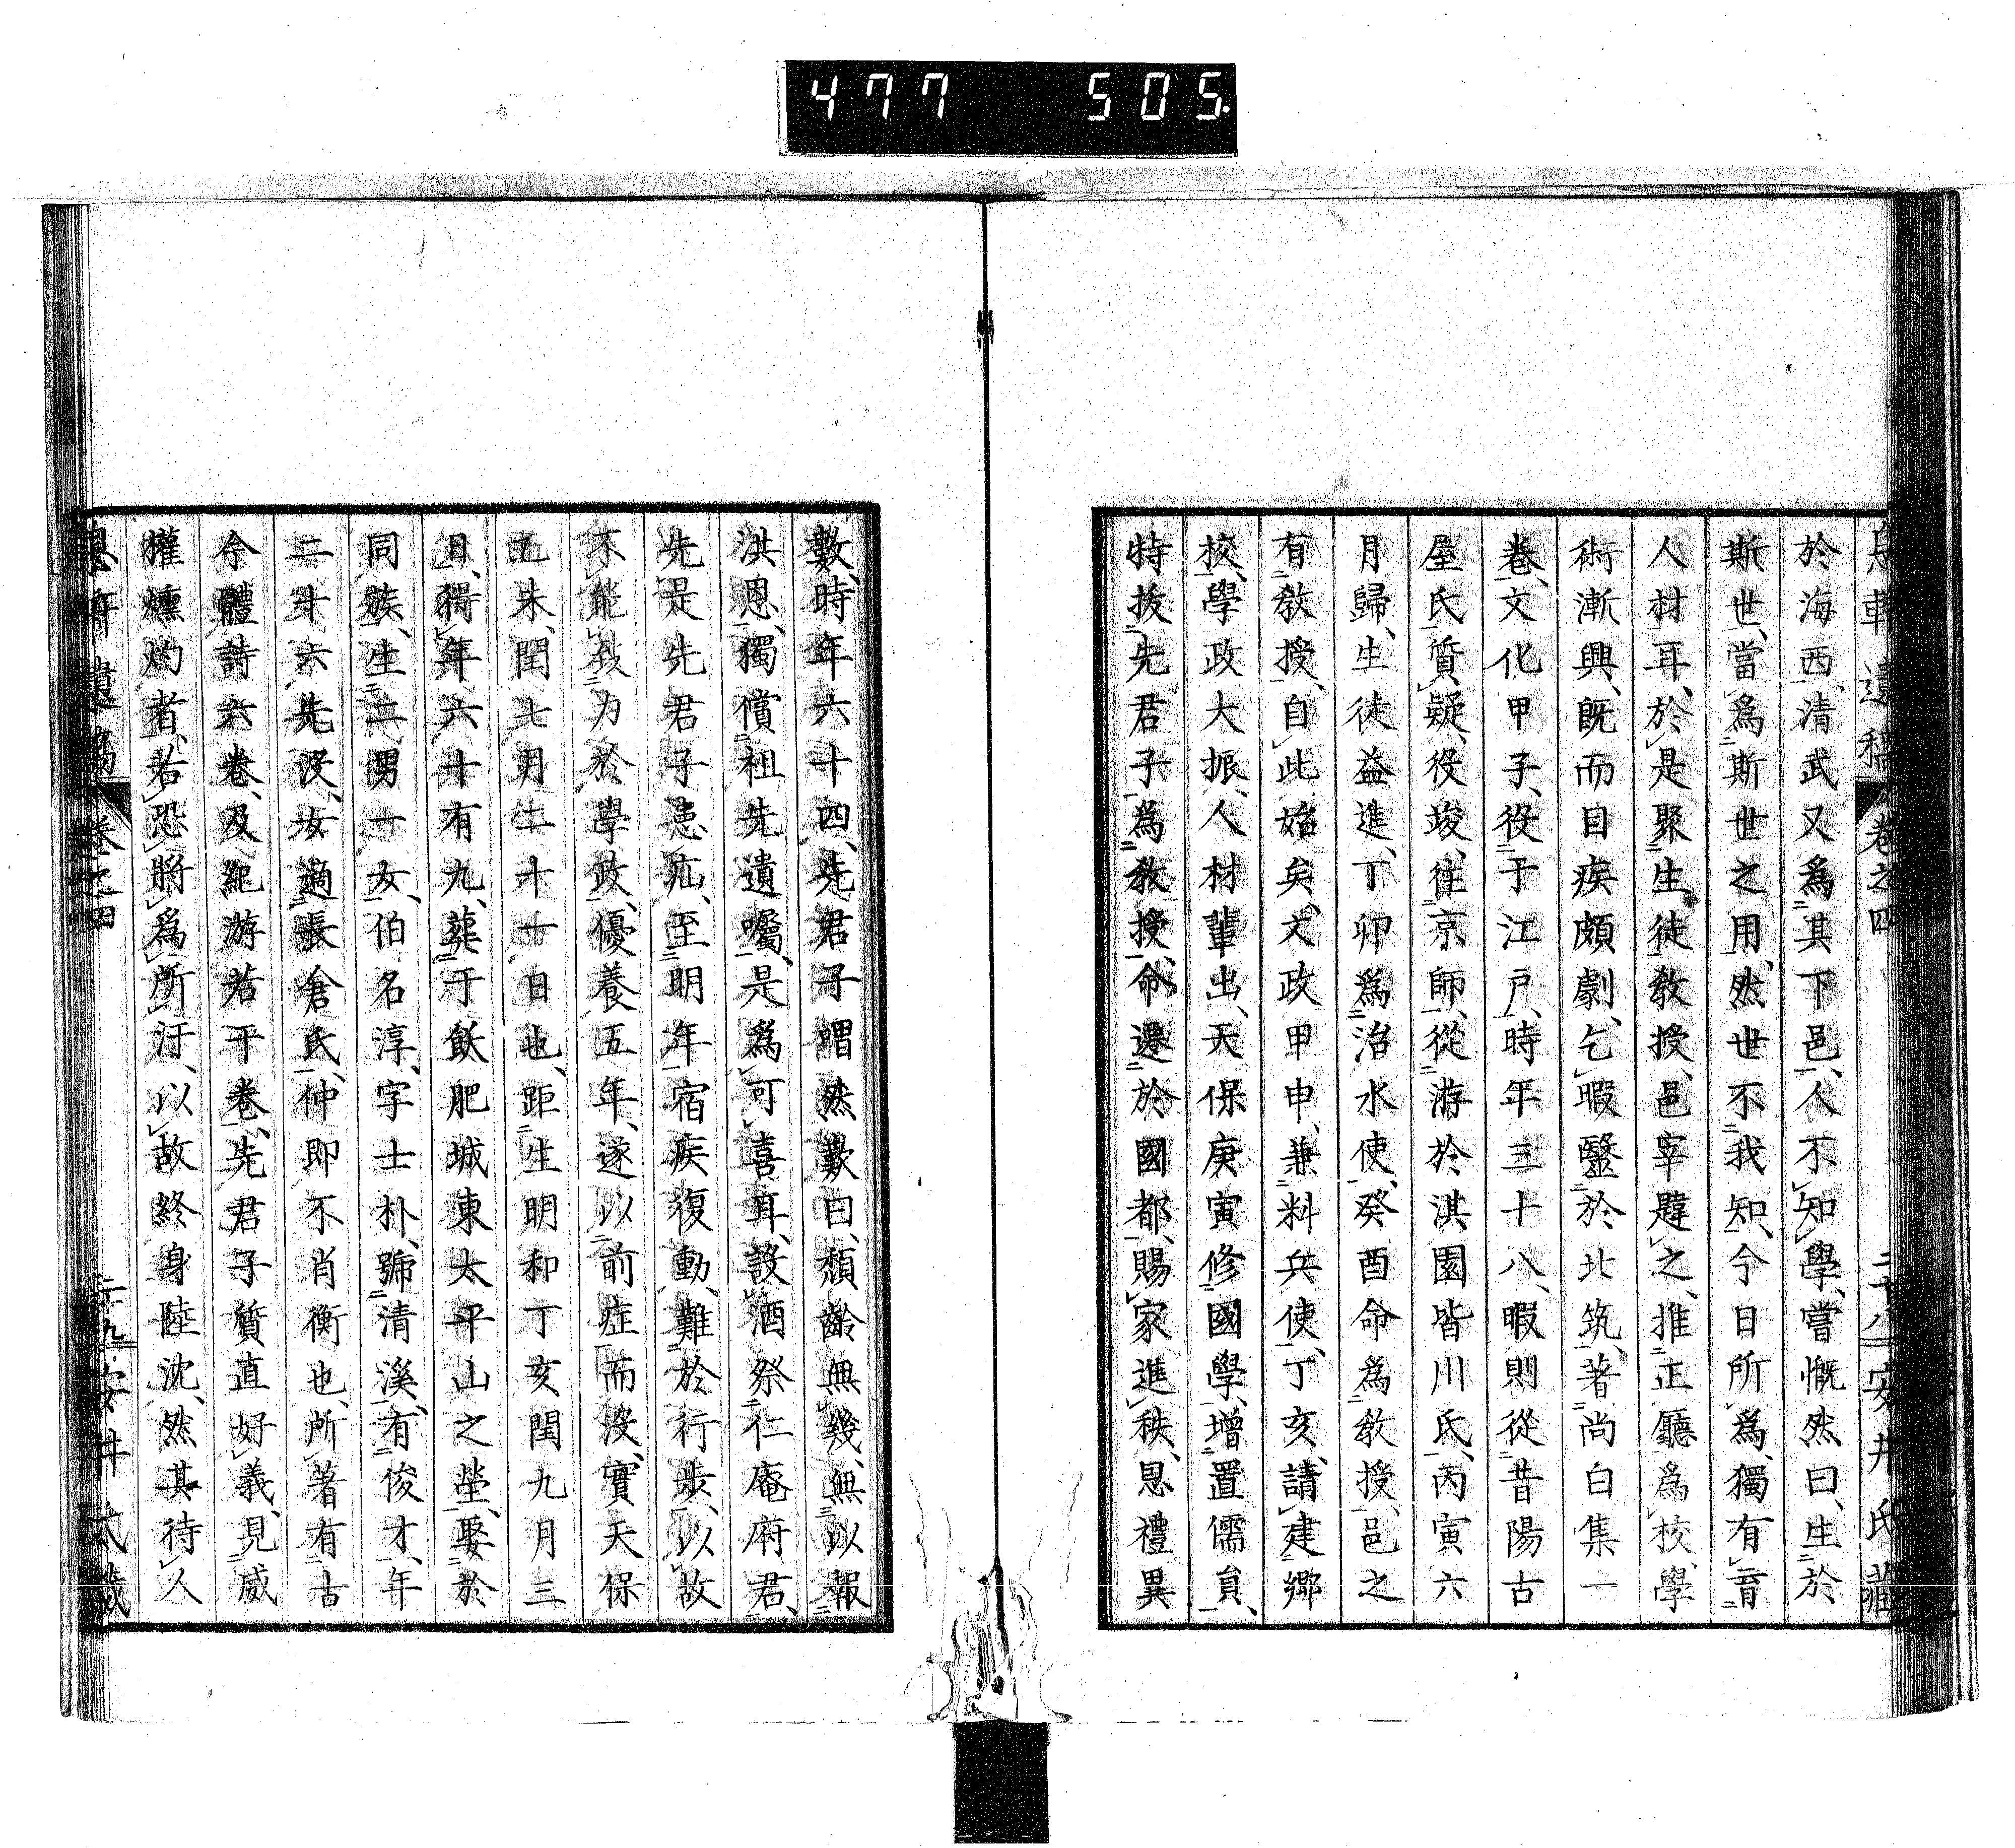 477 505
息軒遺稿 卷之四 二十八 安井氏藏
於海西、清武又爲其下邑、人不知學、嘗慨然曰、生於
斯世、當爲斯世之用、然世不我知、今日所爲、獨有育
人材耳、於是聚生徒教授、邑宰韙之、推正廳爲校、學
術漸興、既而目疾頗劇、乞暇毉於北筑、著尚白集一
卷、文化甲子、役于江戶、時年三十八、暇則從昔陽古
屋氏質疑、役竣、往京師、從游於淇園皆川氏、丙寅六
月歸、生徒益進、丁卯爲治水使、癸酉命爲教授、邑之
有教授、自此始矣、文政甲申、兼料兵使、丁亥、請建鄉
校、學政大振、人材輩出、天保庚寅修國學、增置儒員、
特拔先君子爲教授、命遷於國都、賜家進秩、恩禮異
數、時年六十四、先君子喟然歎曰、頽齡無幾、無以報
洪恩、獨償祖先遺囑、是爲可喜耳、設酒祭仁庵府君、
先是先君子患疝、至明年宿疾復動、難於行步、以故
不能效力於學政、優養五年、遂以前症而沒、實天保
乙未、閏七月二十一日也、距生明和丁亥閏九月三
日、得年六十有九、葬于飫肥城東太平山之塋、娶於
同族、生二男一女、伯名淳、字士朴、號清溪、有俊才、年
二十六先沒、女適長倉氏、仲即不肖衡也、所著有古
今體詩六卷、及紀游若干卷、先君子質直好義、見威
權燻灼者、若恐將爲所汙、以故終身陸沈、然其待人
息軒遺稿 卷之四 二十九 安井氏藏